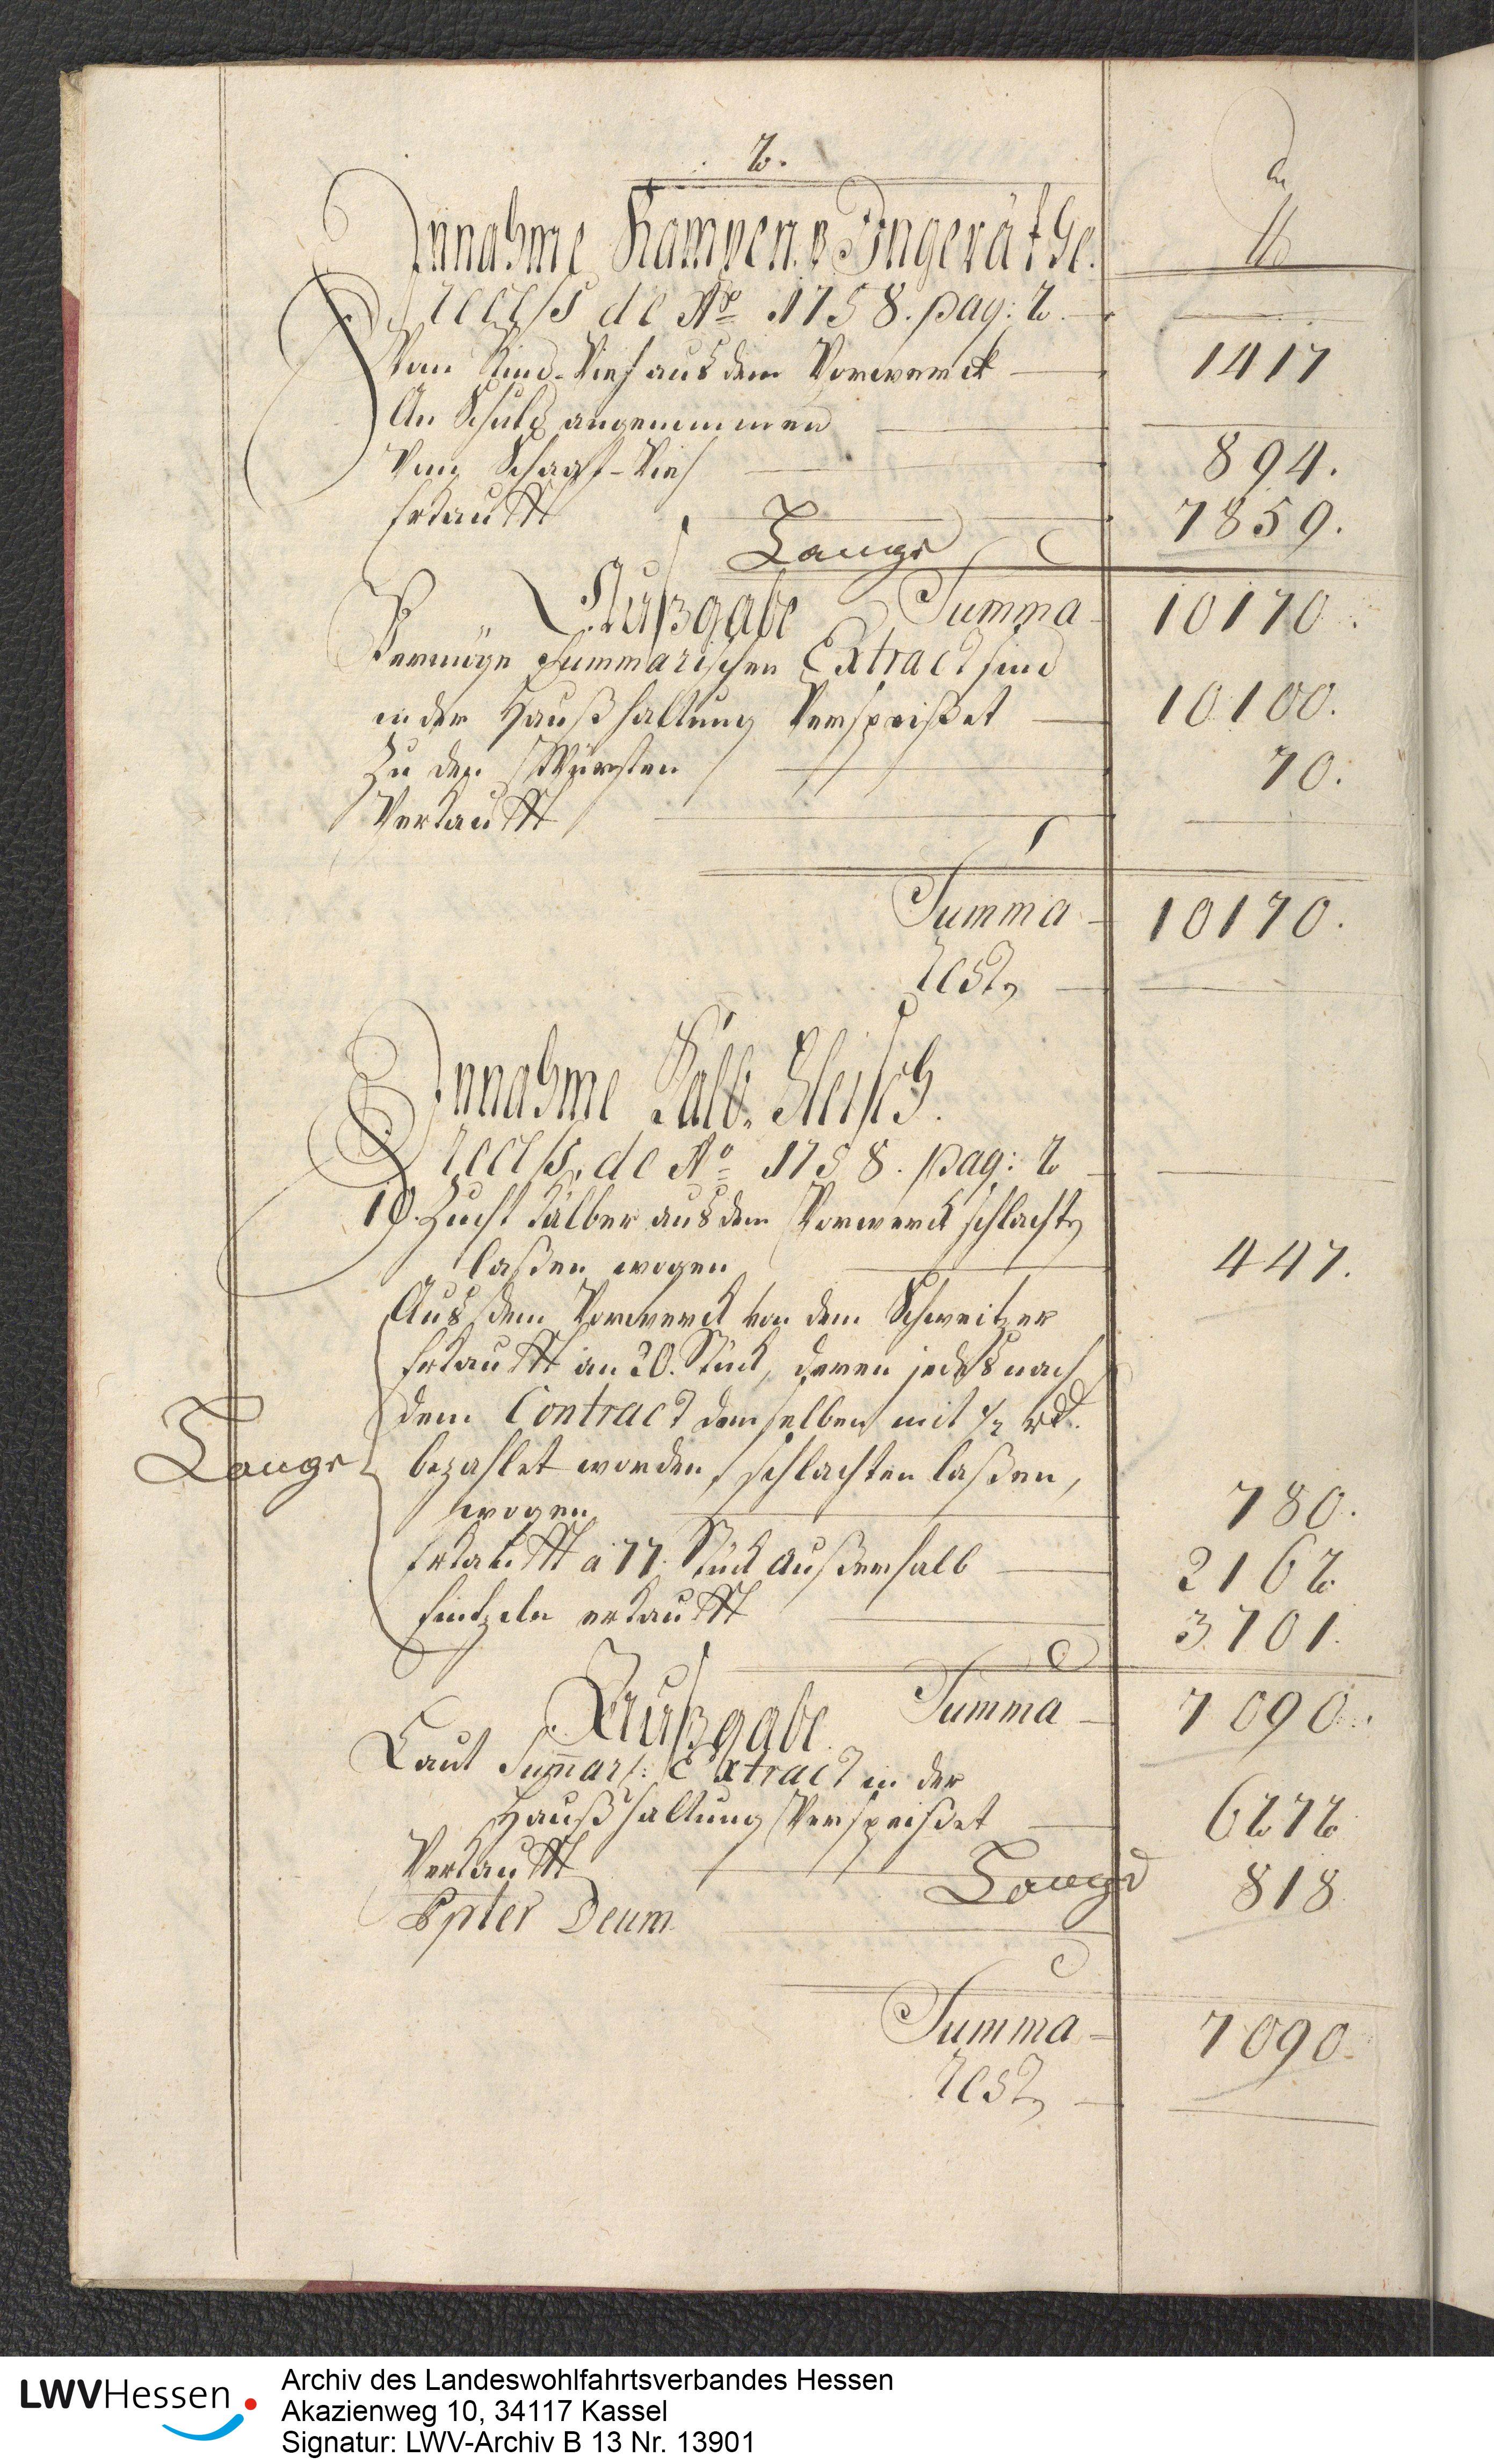 2.
an
lb
Einnahme Kampen u Ingeräthe.
Recess de Ao 1758. pag: 2.
Vom Rind-Vieh aus dem Vorwerck 1417
An Schuld angenommen
Vom Schaaf-Vieh 894.
Erkaufft 7859.
Lange
Außgabe Summa 10170.
Vermöge Summarischen Extract sind
in der Haußhaltung Verspeißet 10100.
Zu den Würsten 70.
Verkaufft
Summa 10170.
Rest
Einnahme Kalb-Fleisch.
Recess de Ao 1758. pag: 2
10. Zucht Kälber aus dem Vorwerck schlachten
laßen wogen 447.
Aus dem Vorwerck von dem Schweitzer
Erkaufft an 20. Stück, deren jedes nach
dem Contract demselben mit 1/2 rt.
Lange
bezahlet worden, schlachten laßen,
wogen 780.
Erkaufft a 77. Stück außerhalb 2162
Eintzeln erkaufft 3701.
Außgabe. Summa 7090.
Laut Summar: Extract in der
Haußhaltung Verspeißet 6272
Verkaufft Lange 818
Propter Deum
Summa 7090.
Rest
LWVHessen
Archiv des Landeswohlfahrtsverbandes Hessen
Akazienweg 10, 34117 Kassel
Signatur: LWV-Archiv B 13 Nr. 13901